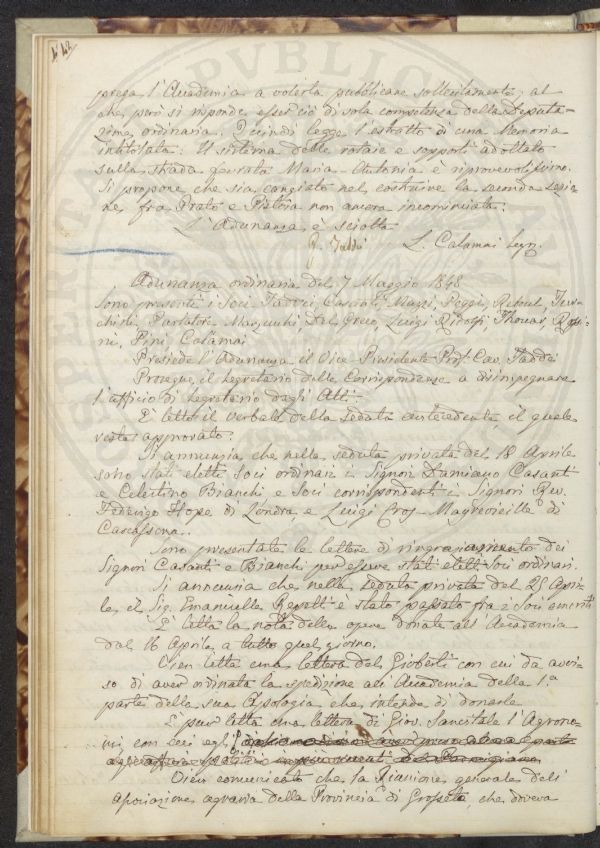 42
prega l'Accademia a volerla pubblicare sollecitamente; al
che però si risponde esser ciò di sola competenza della Deputa-
zione ordinaria. Quindi legge l'estratto di una Memoria
intitolata: Il sistema delle rotaie e supporti adottato
sulla strada ferrata Maria-Antonia è riprovevolissimo.
Si propone che sia cangiato nel costruire la seconda sezio-
ne fra Prato e Pistoia non ancora incominciata.
L'Adunanza è sciolta
Taddei L. Calamai Segr.
Adunanza ordinaria del 7 Maggio 1848
Sono presenti i Soci Taddei, Casciali, Magri, Peggi, Reboul,
Parlatore, Mazzuchi, Del Greco, Luigi Ridolfi, Thouar,
Pini, Calamai
Presiede l'Adunanza il Vice-Presidente Prof. Cav. Taddei
Prosegue il Segretario delle Corrispondenze a disimpegnare
l'ufficio di Segretario degli Atti.
È letto il verbale della seduta antecedente, il quale
resta approvato.
Si annunzia che nella seduta privata del 18 Aprile
sono stati eletti Soci ordinari i Signori Damiano Casanti
e Celestino Bianchi e Soci corrispondenti i Signori Rev.
Federigo Hope di Londra e Luigi Cros-Mayrevieille di
Carcassona.
Sono presentate le lettere di ringraziamento dei
Signori Casanti e Bianchi per essere stati eletti Soci ordinari.
Si annunzia che nella seduta privata del 25 Apri-
le, il Sig. Emanuelle Repetti è stato passato fra i Soci emeriti
È letta la nota delle opere donate all'Accademia
dal 16 Aprile a tutto quel giorno.
Vien letta una lettera del Gioberti con cui dà avvi-
so di aver ordinata la spedizione all'Accademia della 1.a
parte della sua Apologia che intende di donarle
È pur letta una lettera di Giov. Sanvitale l'Agrono-
con cui egli
Vien comunicato che la Riunione generale dell'
Associazione agraria della Provincia di Grosseto, che doveva